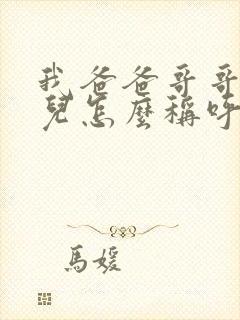 我爸爸哥哥
兒怎麼稱呼
馬媛